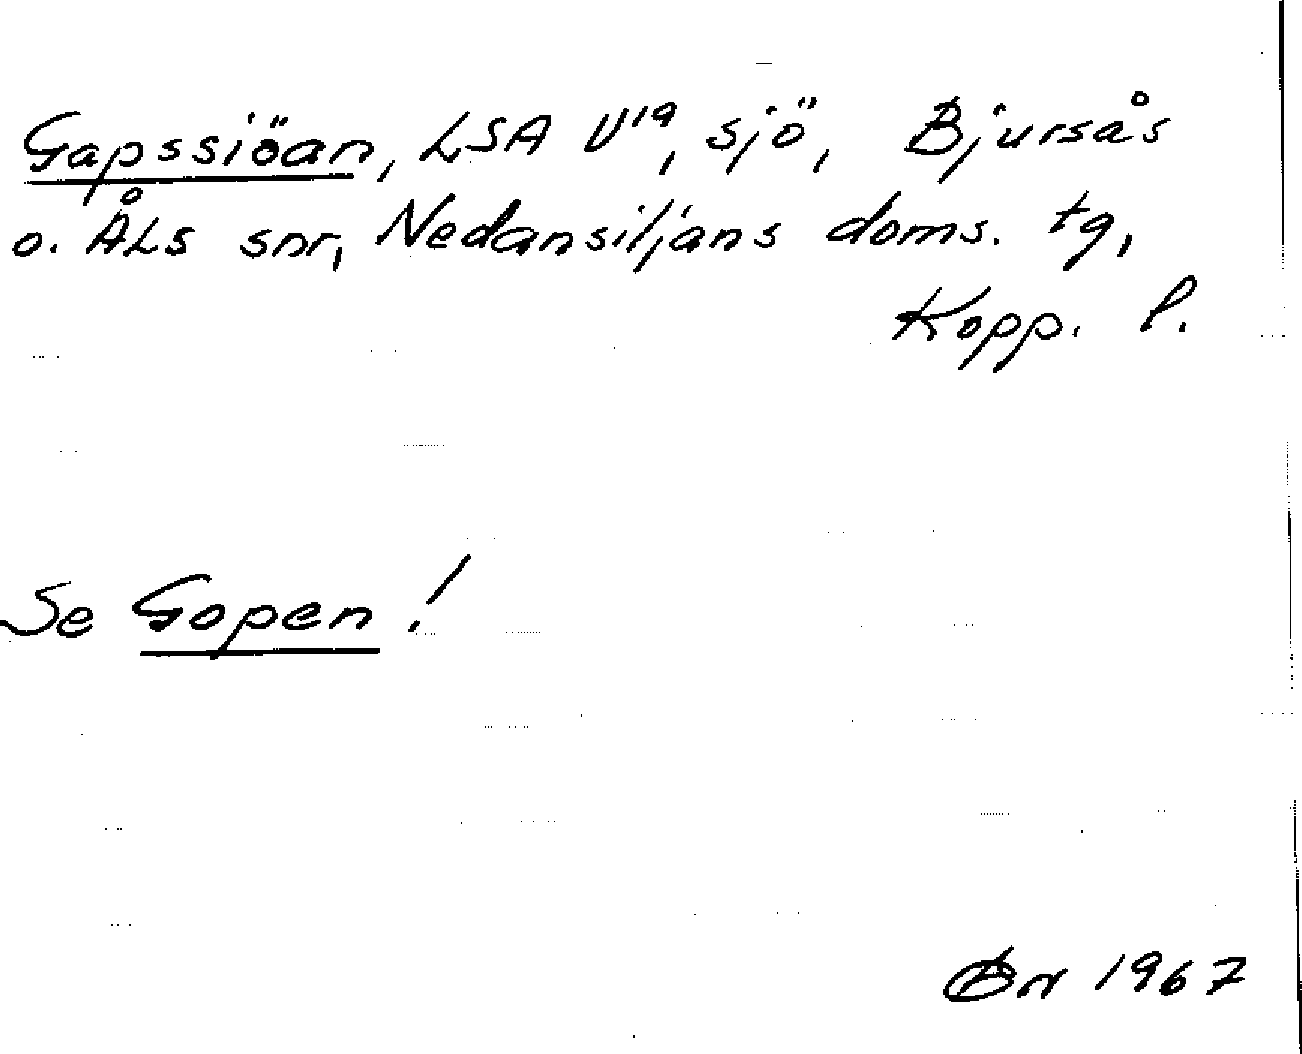 Gapssiöan, LSA U19, sjö, Bjursås
o. Åls snr, Nedansiljans doms. tg,
Kopp. l.
Se Gopen!
1967